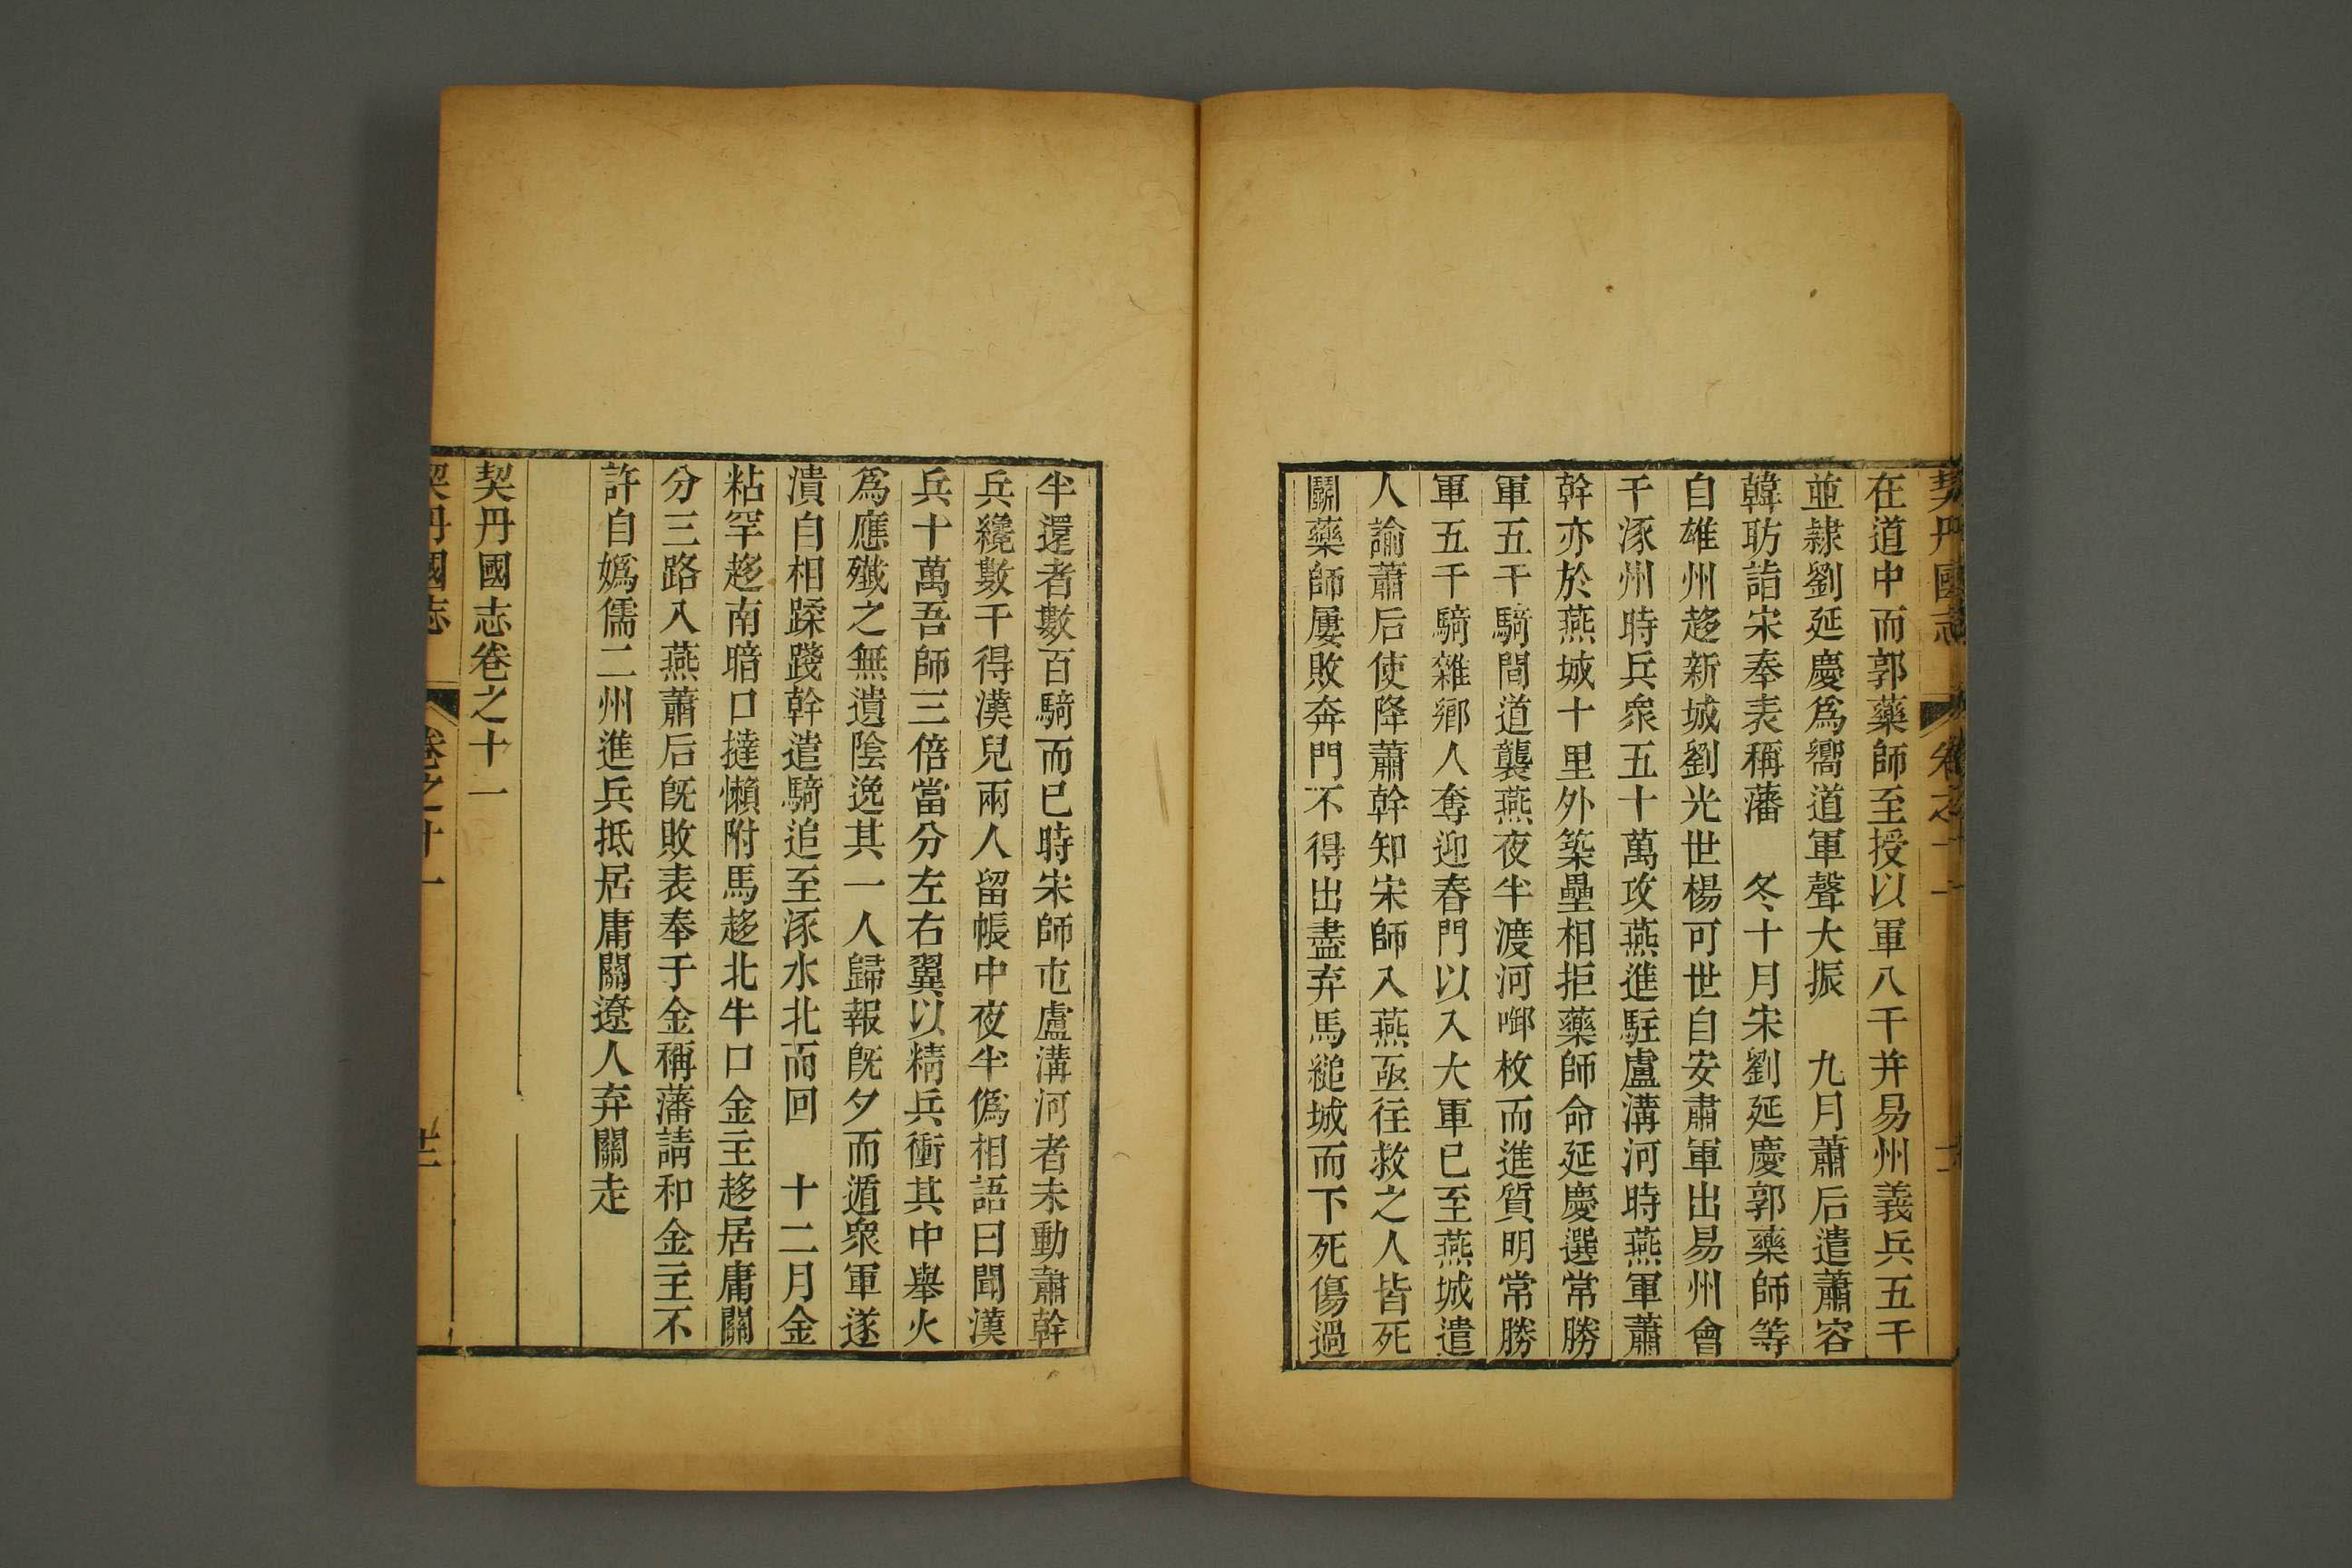 契丹國志 卷之十一
在道中而郭藥師至授以軍八千并易州義兵五千
並隷劉延慶爲嚮道軍聲大振　九月蕭后遣蕭容
韓昉詣宋奉表稱藩　冬十月宋劉延慶郭藥師等
自雄州趍新城劉光世楊可世自安肅軍出易州會
于涿州時兵衆五十萬攻燕進駐盧溝河時燕軍蕭
幹亦於燕城十里外築壘相拒藥師命延慶選常勝
軍五千騎間道襲燕夜半渡河啣枚而進質明常勝
軍五千騎雜鄉人奪迎春門以入大軍已至燕城遣
人諭蕭后使降蕭幹知宋師入燕亟徃救之人皆死
鬬藥師屢敗奔門不得出盡弃馬縋城而下死傷過
半還者數百騎而已時宋師屯盧溝河者未動蕭幹
兵纔數千得漢兒兩人留帳中夜半僞相語曰聞漢
兵十萬吾師三倍當分左右翼以精兵衝其中舉火
爲應殲之無遺陰逸其一人歸報旣夕而遁衆軍遂
潰自相蹂踐幹遣騎追至涿水北而回　十二月金
粘罕趍南暗口撻懶附馬趍北牛口金主趍居庸關
分三路入燕蕭后旣敗表奉于金稱藩請和金主不
許自嬀儒二州進兵抵居庸關遼人弃關走
契丹國志卷之十一
契丹國志 卷之十一